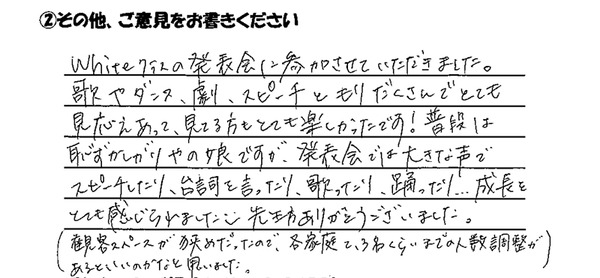 ②その他、ご意見をお書きください
Whiteクラスの発表会に参加させていただきました。
歌やダンス、劇、スピーチともりだくさんでとても
見応えあって、見てる方もとても楽しかったです！普段は
恥ずかしがりやの娘ですが、発表会では大きな声で
スピーチしたり、台詞を言ったり、歌ったり、踊ったり…成長を
とても感じられました 先生方ありがとうございました。
（観客スペースが狭めだったので、各家庭で、3名くらいまでの人数調整が
あるといいのかなと思いました。）